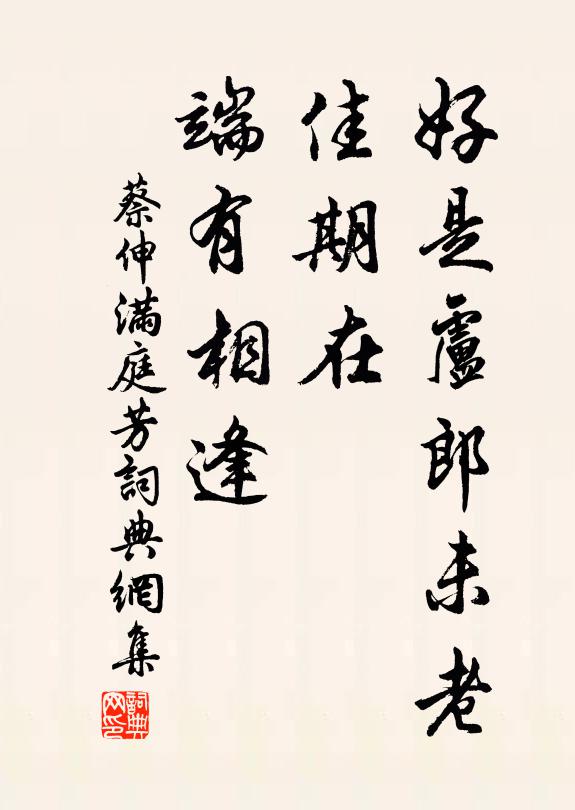 好是盧郎未老
佳期在
端有相逢
蔡伸滿庭芳詞典網集
詞典网印